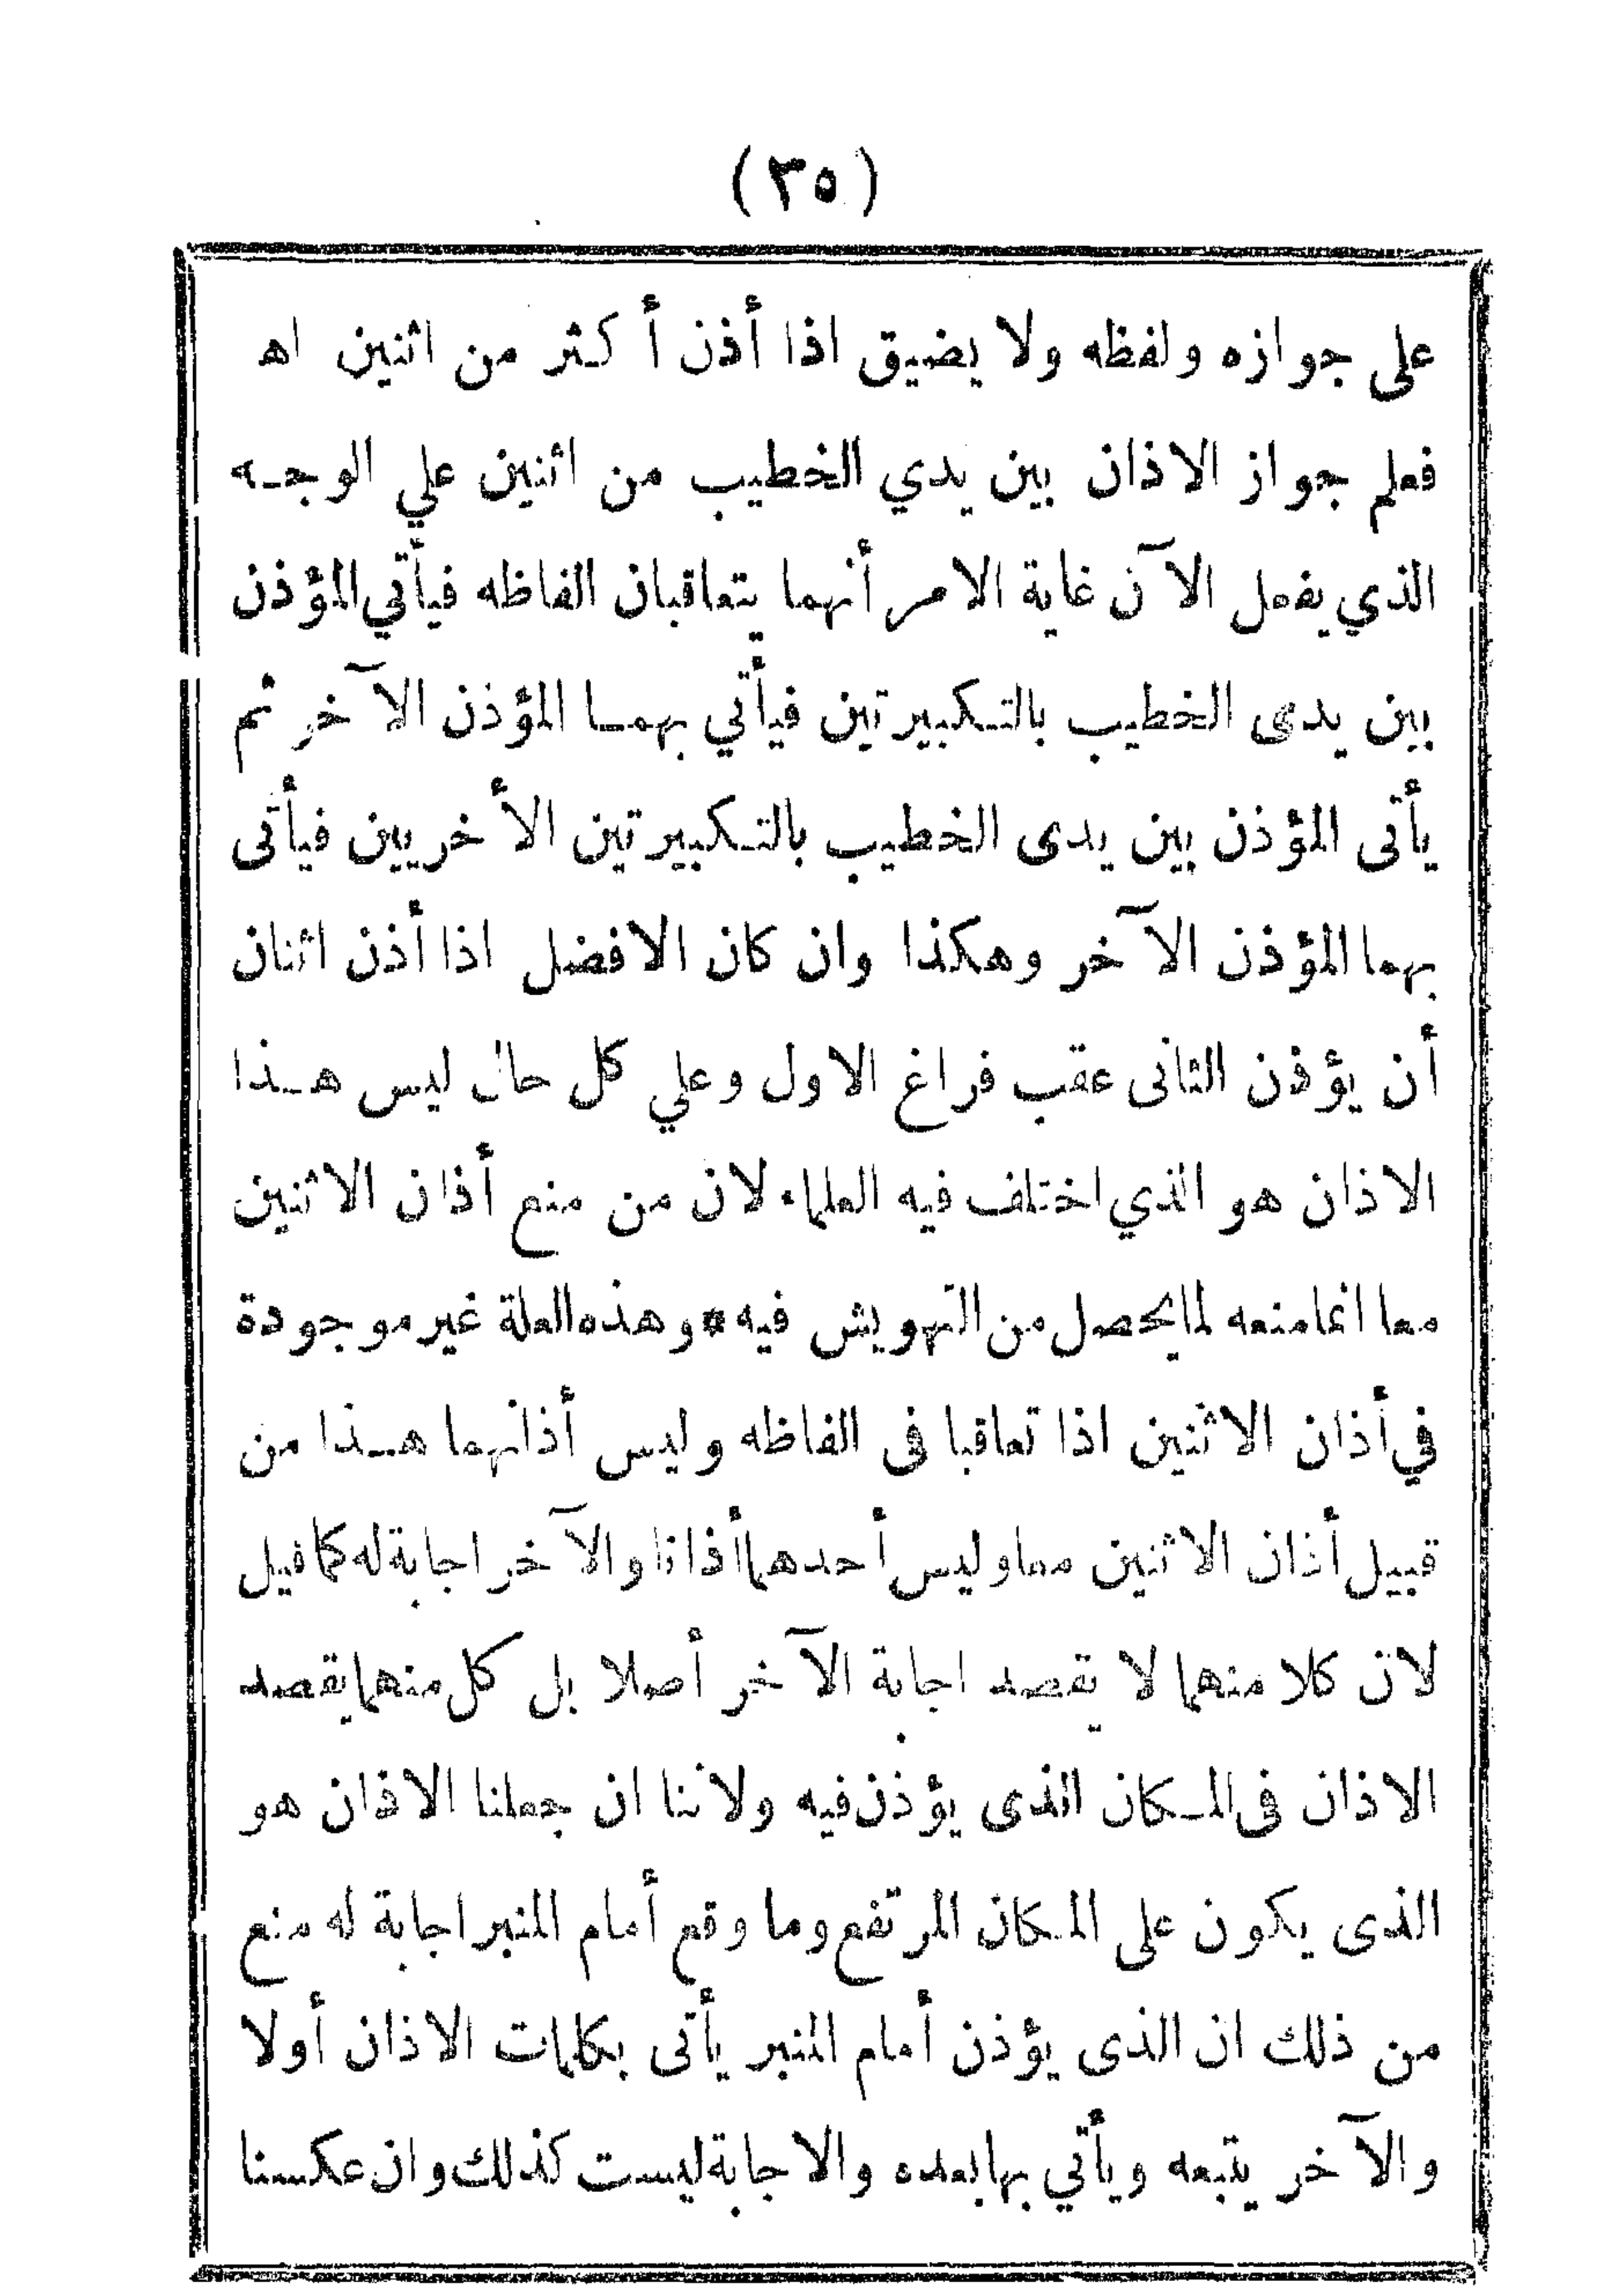 (٣٥)
على جوازه ولفظه ولا يضيق اذا أذن أكثر من اثنين اه
فعلم جواز الاذان بين يدي الخطيب من اثنين علي الوجه
الذي يفعل الآن غاية الامر أنهما يتعاقبان الفاظه فيأتي المؤذن
بين يدى الخطيب بالتكبيرتين فيأتي بهما المؤذن الآخر ثم
يأتى المؤذن بين يدى الخطيب بالتكبيرتين الأخريين فيأتى
بهما المؤذن الآخر وهكذا وان كان الافضل اذا أذن اثنان
أن يؤذن الثانى عقب فراغ الاول وعلي كل حال ليس هذا
الاذان هو الذي اختلف فيه العلماء لان من منع أذان الاثنين
معا انما منعه لما يحصل من التهويش فيه * وهذه العلة غير موجودة
في أذان الاثنين اذا تعاقبا فى الفاظه وليس أذانهما هذا من
قبيل أذان الاثنين معا وليس أحدهما أذانا والآخر اجابة له كما قيل
لان كلا منهما لا يقصد اجابة الآخر أصلا بل كل منهما يقصد
الاذان فى المكان الذى يؤذن فيه ولاننا ان جعلنا الاذان هو
الذى يكون على المكان المرتفع وما وقع أمام المنبر اجابة له منع
من ذلك ان الذى يؤذن أمام المنبر يأتى بكلمات الاذان أولا
والآخر يتبعه ويأتي بها بعده والاجابة ليست كذلك وان عكسنا